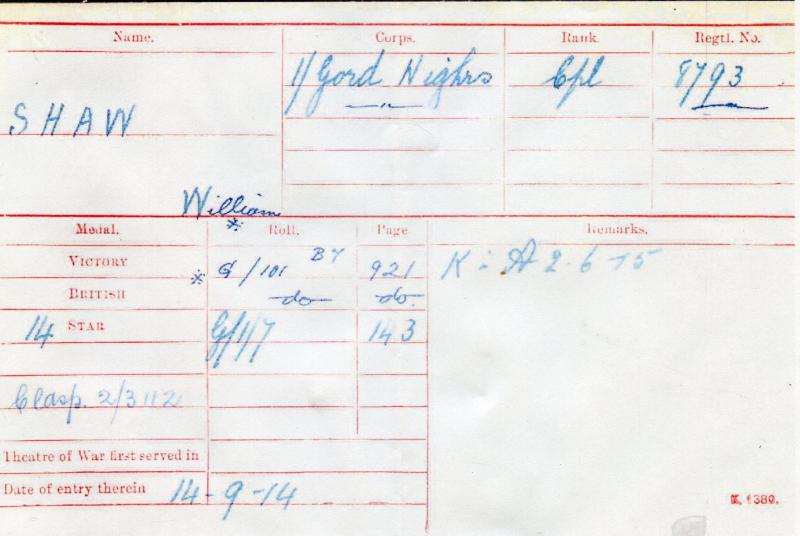 Name. Corps. Rank. Regtl. No.
SHAW 1/Gord Highrs Cpl 8793
William
Medal. Roll. Page. Remarks.
VICTORY * G/101 B7 921 K in A 2-6-15
BRITISH do do
14 STAR G/1/7 143
Clasp. 2/3112
Theatre of War first served in
Date of entry therein 14-9-14
K. 1380.